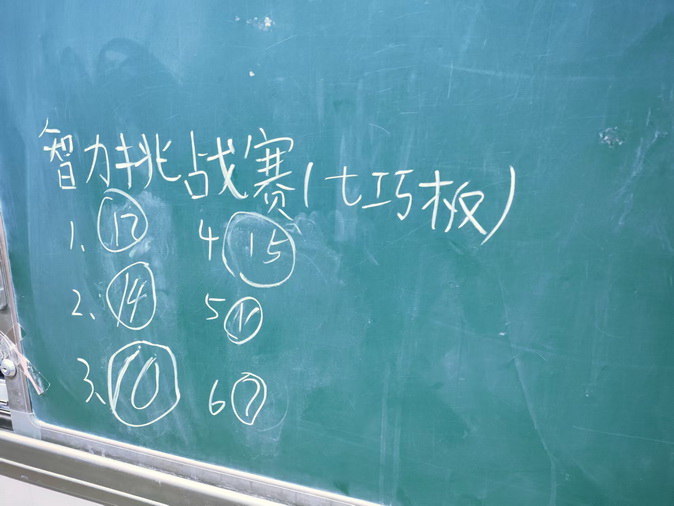 智力挑战赛(七巧板)
1. 12 4. 15
2. 14 5
3. 10 6 7